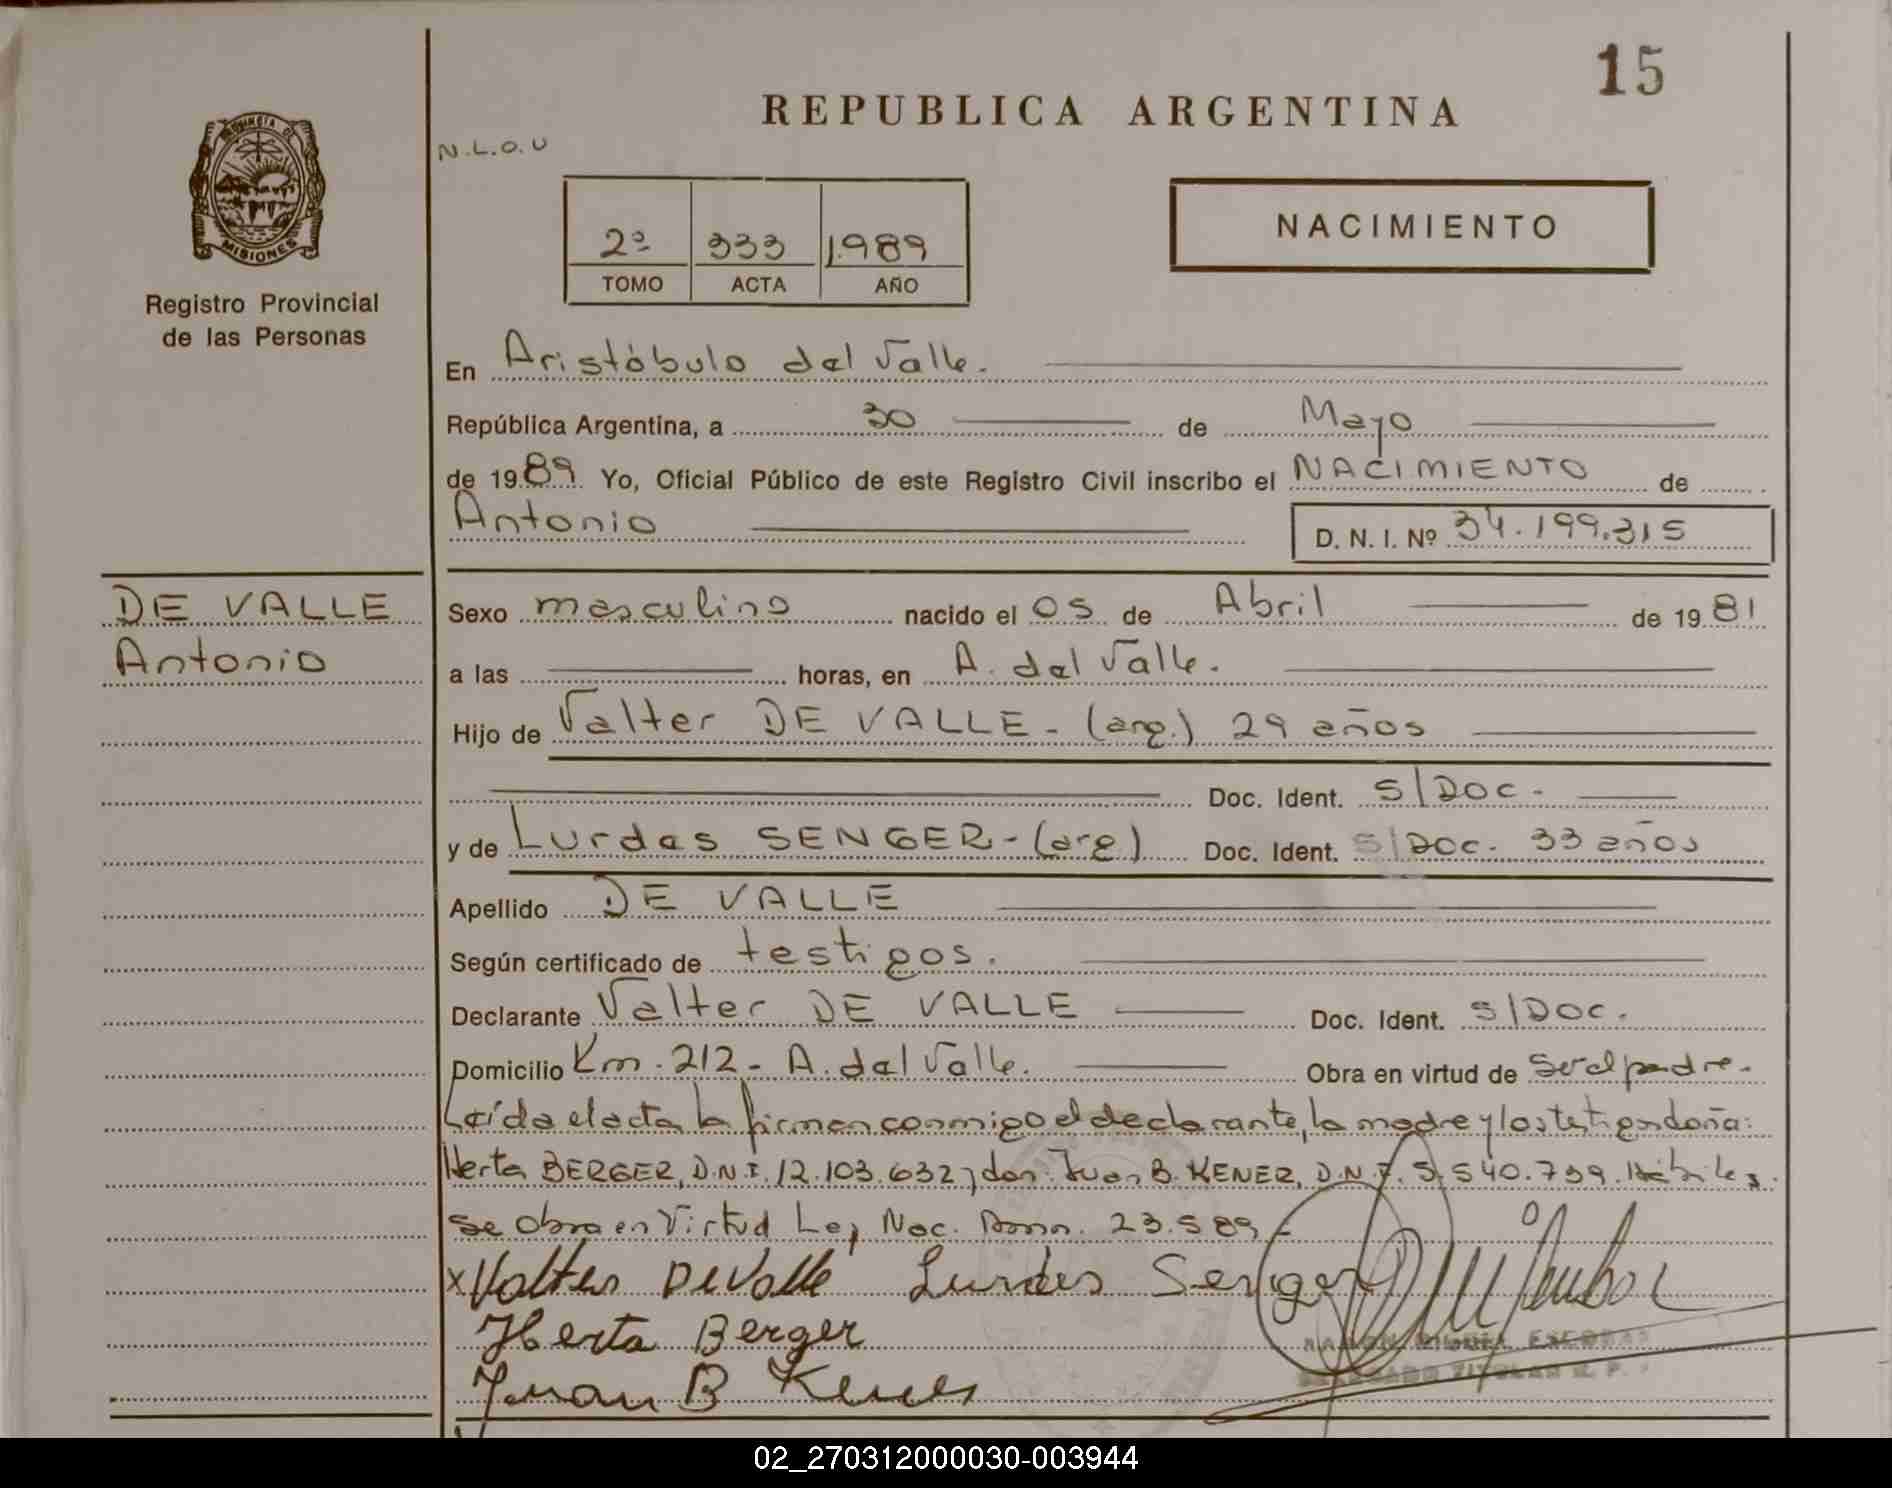 15
REPUBLICA ARGENTINA
N.L.O.U
PROVINCIA DE
MISIONES
Registro Provincial
de las Personas
2º 333 1.989
TOMO ACTA AÑO
NACIMIENTO
En Aristóbulo del Valle.
República Argentina, a 30 de Mayo
de 1989 Yo, Oficial Público de este Registro Civil inscribo el NACIMIENTO de
Antonio D. N. I. Nº 34.199.315
DE VALLE
Antonio
Sexo masculino nacido el 05 de Abril de 1981
a las horas, en A. del Valle.
Hijo de Valter DE VALLE - (arg.) 29 años
Doc. Ident. S/Doc.
y de Lurdes SENGER - (arg) Doc. Ident. S/Doc. 33 años
Apellido DE VALLE
Según certificado de testigos.
Declarante Valter DE VALLE Doc. Ident. S/Doc.
Domicilio Km. 212 - A. del Valle. Obra en virtud de ser el padre.
Leída el acta la firman conmigo el declarante, la madre y los testigos doña:
Herta BERGER, D.N.I. 12.103.632 y don: Juan B. KENER, D.N.I. 5.540.759. Hábiles
se obra en Virtud Ley Nac. 23.589 -
x Valter De Valle Lurdes Senger
Herta Berger
Juan B Kener
RAMON MIGUEL ESCOBAR
DELEGADO TITULAR R. P.
02_270312000030-003944